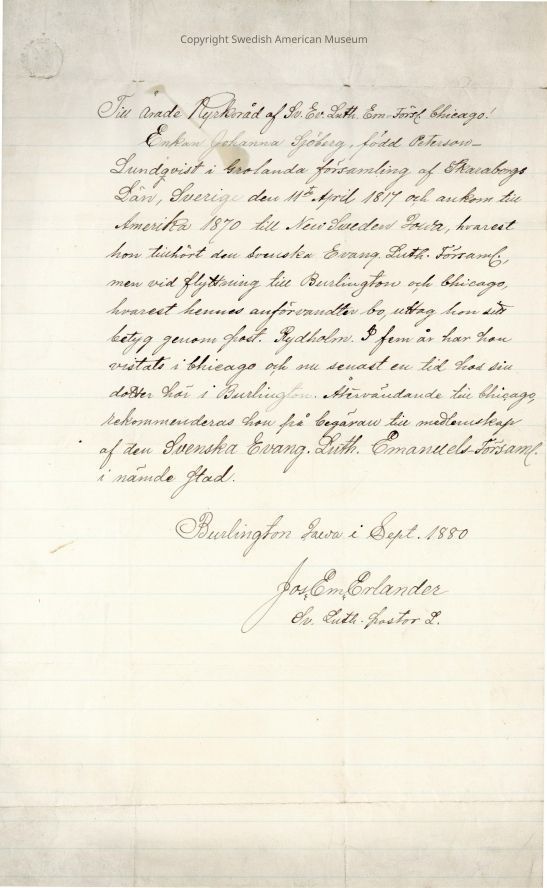 Copyright Swedish American Museum
Till ärade Kyrkoråd af Sv. Ev. Luth. Em-Förs. Chicago!
Enkan Johanna Sjöberg, född Peterson-
Lundqvist i Grolanda församling af Skaraborgs
Län, Sverige den 11te April 1817 och ankom till
Amerika 1870 till New Sweden Iowa, hvarest
hon tillhört den Svenska Evang. Luth. Församl,
men vid flyttning till Burlington och Chicago,
hvarest hennes anförvandter bo, uttog hon sitt
betyg genom past. Rydholm. I fem år har hon
vistats i Chicago och nu senast en tid hos sin
dotter här i Burlington. Återvändande till Chicago,
rekommenderas hon på begäran till medlemskap
af den Svenska Evang. Luth. Emanuels-Församl.
i nämde stad.
Burlington Iowa i Sept. 1880
Jos. Em. Erlander
Sv. Luth. pastor